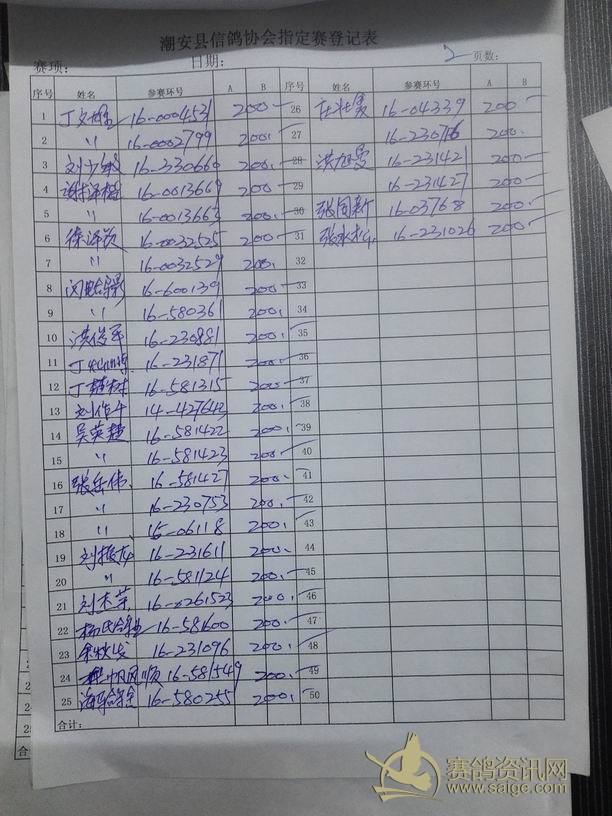 潮安县信鸽协会指定赛登记表
赛项: 日期: 2 页数:
序号 姓名 参赛环号 A B 序号 姓名 参赛环号 A B
1 16-0004531 200 26 16-04339 200
2 〃 16-0002799 200 27 16-230716 200
3 刘少敏 16-330660 200 28 洪旭曼 16-231421 200
4 谢泽楷 16-0013669 200 29 16-231427 200
5 〃 16-0013663 200 30 张同新 16-03768 200
6 徐泽欣 16-0032525 200 31 张永松 16-231026 200
7 〃 16-0032529 200 32
8 16-600139 200 33
9 〃 16-580361 200 34
10 洪俊军 16-230881 200 35
11 16-231871 200 36
12 丁楚树 16-581315 200 37
13 刘作千 14-427643 200 38
14 吴英楚 16-581422 200 39
15 〃 16-581423 200 40
16 张岳伟 16-581427 200 41
17 〃 16-230753 200 42
18 〃 15-06118 200 43
19 刘振龙 16-231611 200 44
20 〃 16-581124 200 45
21 刘木荣 16-0261523 200 46
22 杨氏鸽业 16-581600 200 47
23 余秋发 16-231096 200 48
24 一帆风顺 16-581549 200 49
25 16-580255 200 50
合计:
赛鸽资讯网
www.saige.com